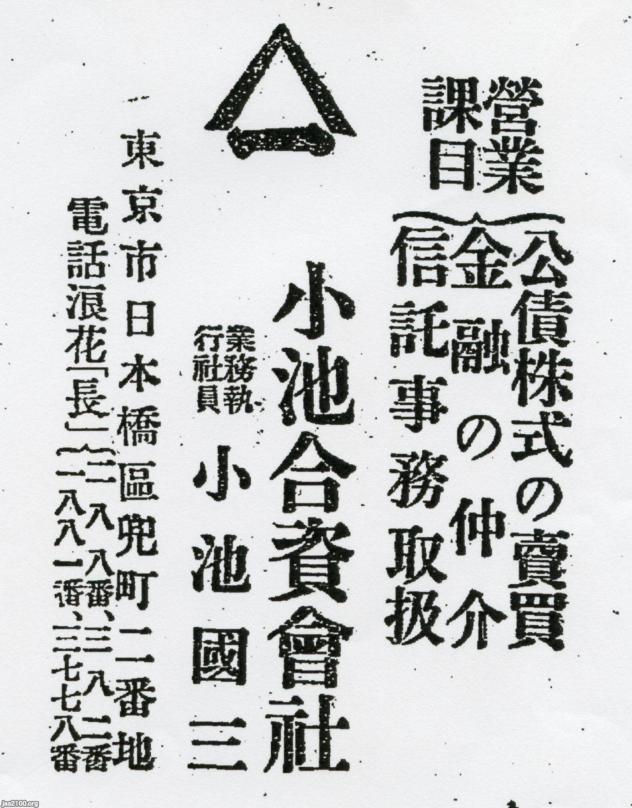 營業
課目
公債株式の賣買
金融の仲介
信託事務取扱
小池合資會社
業務執
行社員
小池國三
東京市日本橋區兜町二一番地
電話浪花「長」
二八八番、三八二番
一八八一番、三七七八番
jaa2100.org